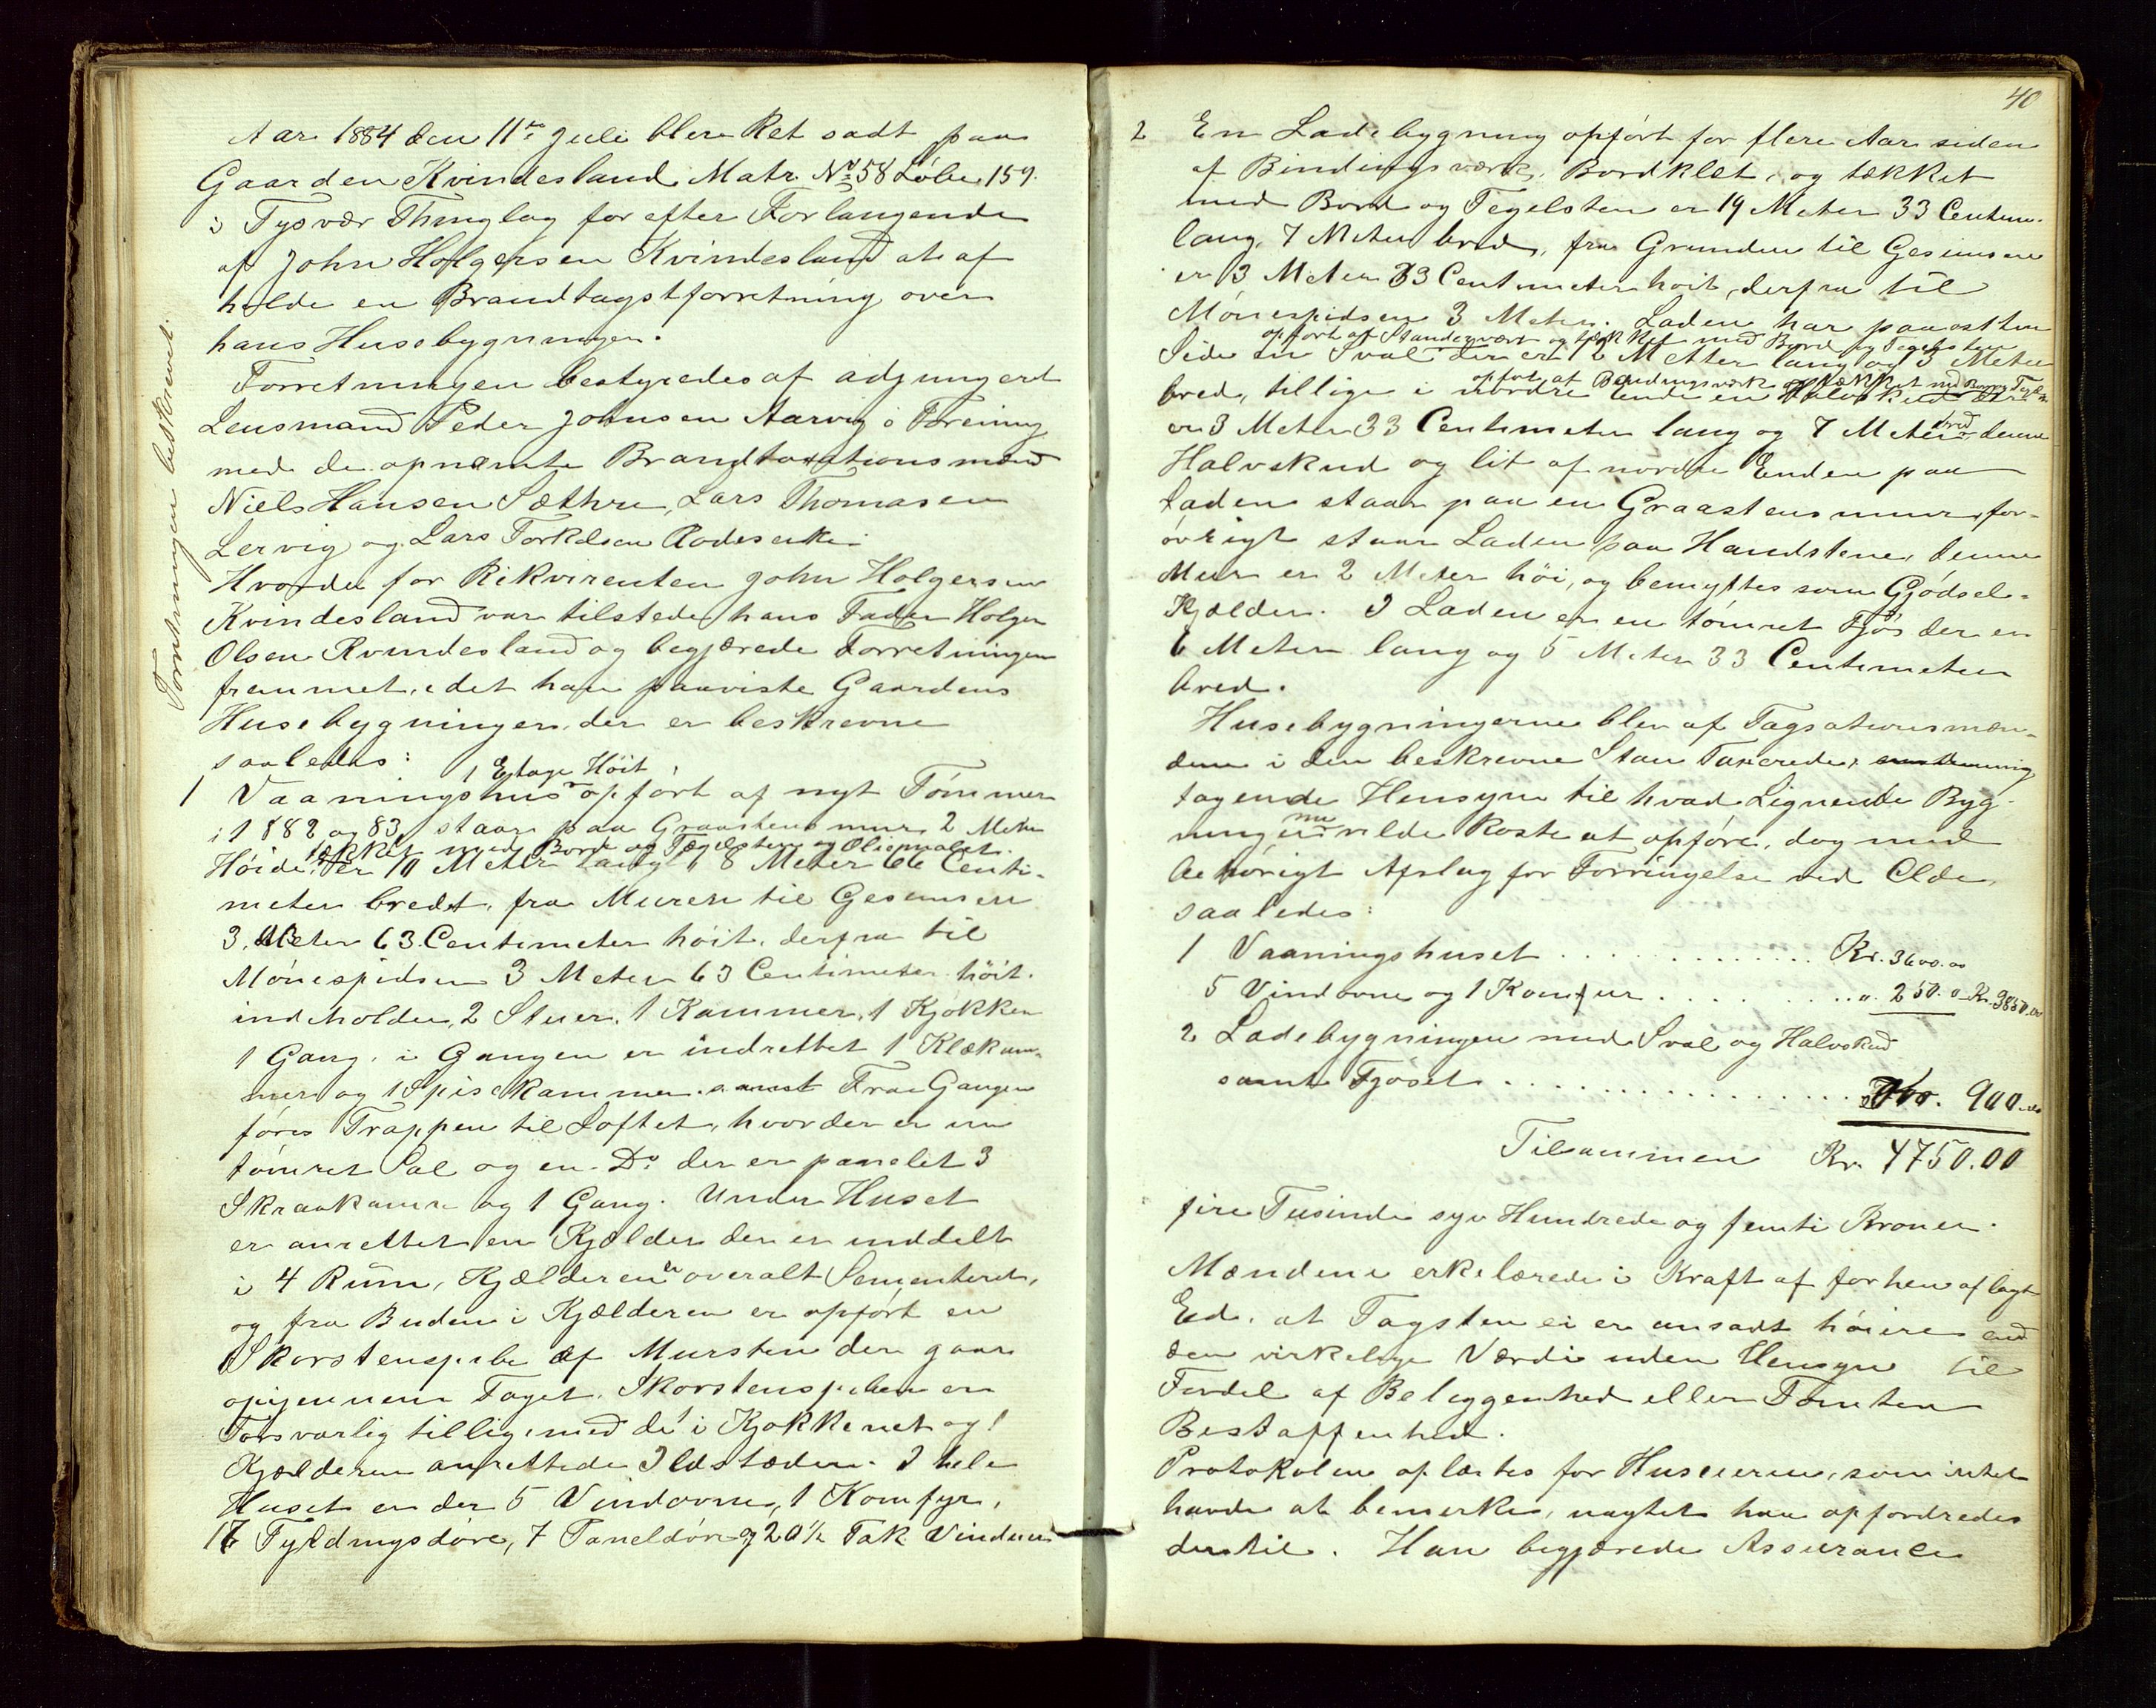 Forretningen beskrevet.
Aar 1884 den 11te Juli blev Ret sadt paa
Gaarden Kvindesland Matr No 58 Løbe, 159.
i Tysvær Thinglag for efter Forlangende
af John Holgersen Kvindesland at af
holde en Brandtagstforretning over
hans Husebygninger.
Forretningen bestyredes af adjungeret
Lensmand Peder Johnsen Aarvig i Forening
med de opnæmte Brandtaxtionsmænd
Niels Hansen Sæthre, Lars Thomasen
Lervig og Lars Torkelsen
Hvorder for Rikvirenten John Holgersen
Kvindesland var tilstede hans Fader Holger
Olsen Kvindesland og begjærede Forretningen
fremmet, idet han paaviste Gaardens
Husebygninger, der er beskrevne
saaledes:
1 Etage Höit,
1 Vaaningshus opfört af nyt Tömmer
i 1882 og 83, staar paa Graastens mur 2 Meter
tækket med Bord og Tegelsten og Oliemalet.
Höide, Er 10 Meter lang 8 Meter 66 Centi-
meter bredt, fra Muren til Gesimsen
3, Meter 63 Centimeter höit, derfra til
Mönespidsen 3 Meter 63 Centimeter höit.
indholder, 2 Stuer, 1 Kammer, 1 Kjøkken
1 Gang, i Gangen er indrettet 1 Klækam-
mer og 1 Spisekammer. Fra Gangen
föres Trappen til Loftet, hvor der er en
tömret Sal og en Do der er panelet 3
Skraakamre og 1 Gang. Under Huset
er anrettet en Kjælder der er inddelt
i 4 Rum, Kjælderen er overalt Sementeret,
og fra Buden i Kjælderen er opfört en
Skorstenspibe af Mursten der gaar
opigjennem Taget. Skorstenspiben er
Forsvarlig tillige med de i Kjøkkenet og
Kjælderen anrettede Ildstæder. I hele
Huset er der 5 Vindovne, 1 Komfyr,
17 Fyldingsdöre, 7 Paneldöre og 20 1/2 Fak Vinduer
40
2 En Ladebygning opfört for flere Aar siden
af Bindingsværk, Bordklæt, og tækket
med Bord og Tegelsten er 19 Meter 33 Centim.
lang, 7 Meter bred, fra Grunden til Gesimsen
er 3 Meter 33 Centimeter höit, derfra til
Mönespidsen 3 Meter. Laden har paa østre
opfört af Standerværk og tækket med Bord og Tegelsten
Side en Sval der er 12 Metter lang og 3 Meter
opfört af Bindingsværk og tækket med Bord og Tegelsten
bred, tillige i nordre Ende en Halvskud der
er 3 Meter 33 Centimeter lang og 7 Meter bred denne
Halvskud og lit af nordre Enden paa
Laden staar paa en Graastensmur, for-
övrigt staar Laden paa Handstene, denne
Mur er 2 Meter höi, og benyttes som Gjödsel-
Kjælder. I Laden er en tömret Fjös der er
6 Meter lang og 5 Meter 33 Centimeter
bred.
Husebygningerne blev af Tagsationsmæn-
dene i den beskrevne Stan Taxerede,
tagende Hensyn til hvad Lignende Byg-
ninger nu vilde koste at opföre, dog med
behörigt Afslag for Forringelse ved Elde,
saaledes:
1 Vaaningshuset . . . . . . . . . . . . . Kr. 3600.00
5 Vindovne og 1 Komfur . . . . . . . . . „ 250.0 Kr. 3850.00
2 Ladebygningen med Sval og Halvskud
samt Fjöset . . . . . . . . . . . . . . . . Kr. 900.00
Tilsammen Kr. 4750.00
fire Tusinde syv Hundrede og femti Kroner.
Mændene erkelærede i Kraft af forhen aflagt
Eed, at Tagsten ei er ansadt höiere end
den virkelige Værdi uden Hensyn til
Fordel af Beliggenhed eller Tomten
Beskaffenhed.
Protokolen oplæstes for Huseieren, som intet
havde at bemerke, uagtet han opfordredes
dertil. Han begjærede Assurance